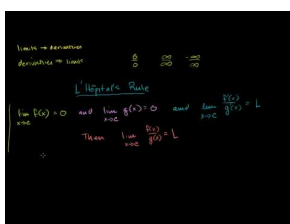 limits → derivatives
derivatives → limits 0/0 ∞/∞ -∞/∞
L'Hôpital's Rule
lim x→c f(x) = 0 and lim x→c g(x) = 0 and lim x→c f'(x)/g'(x) = L
Then lim x→c f(x)/g(x) = L